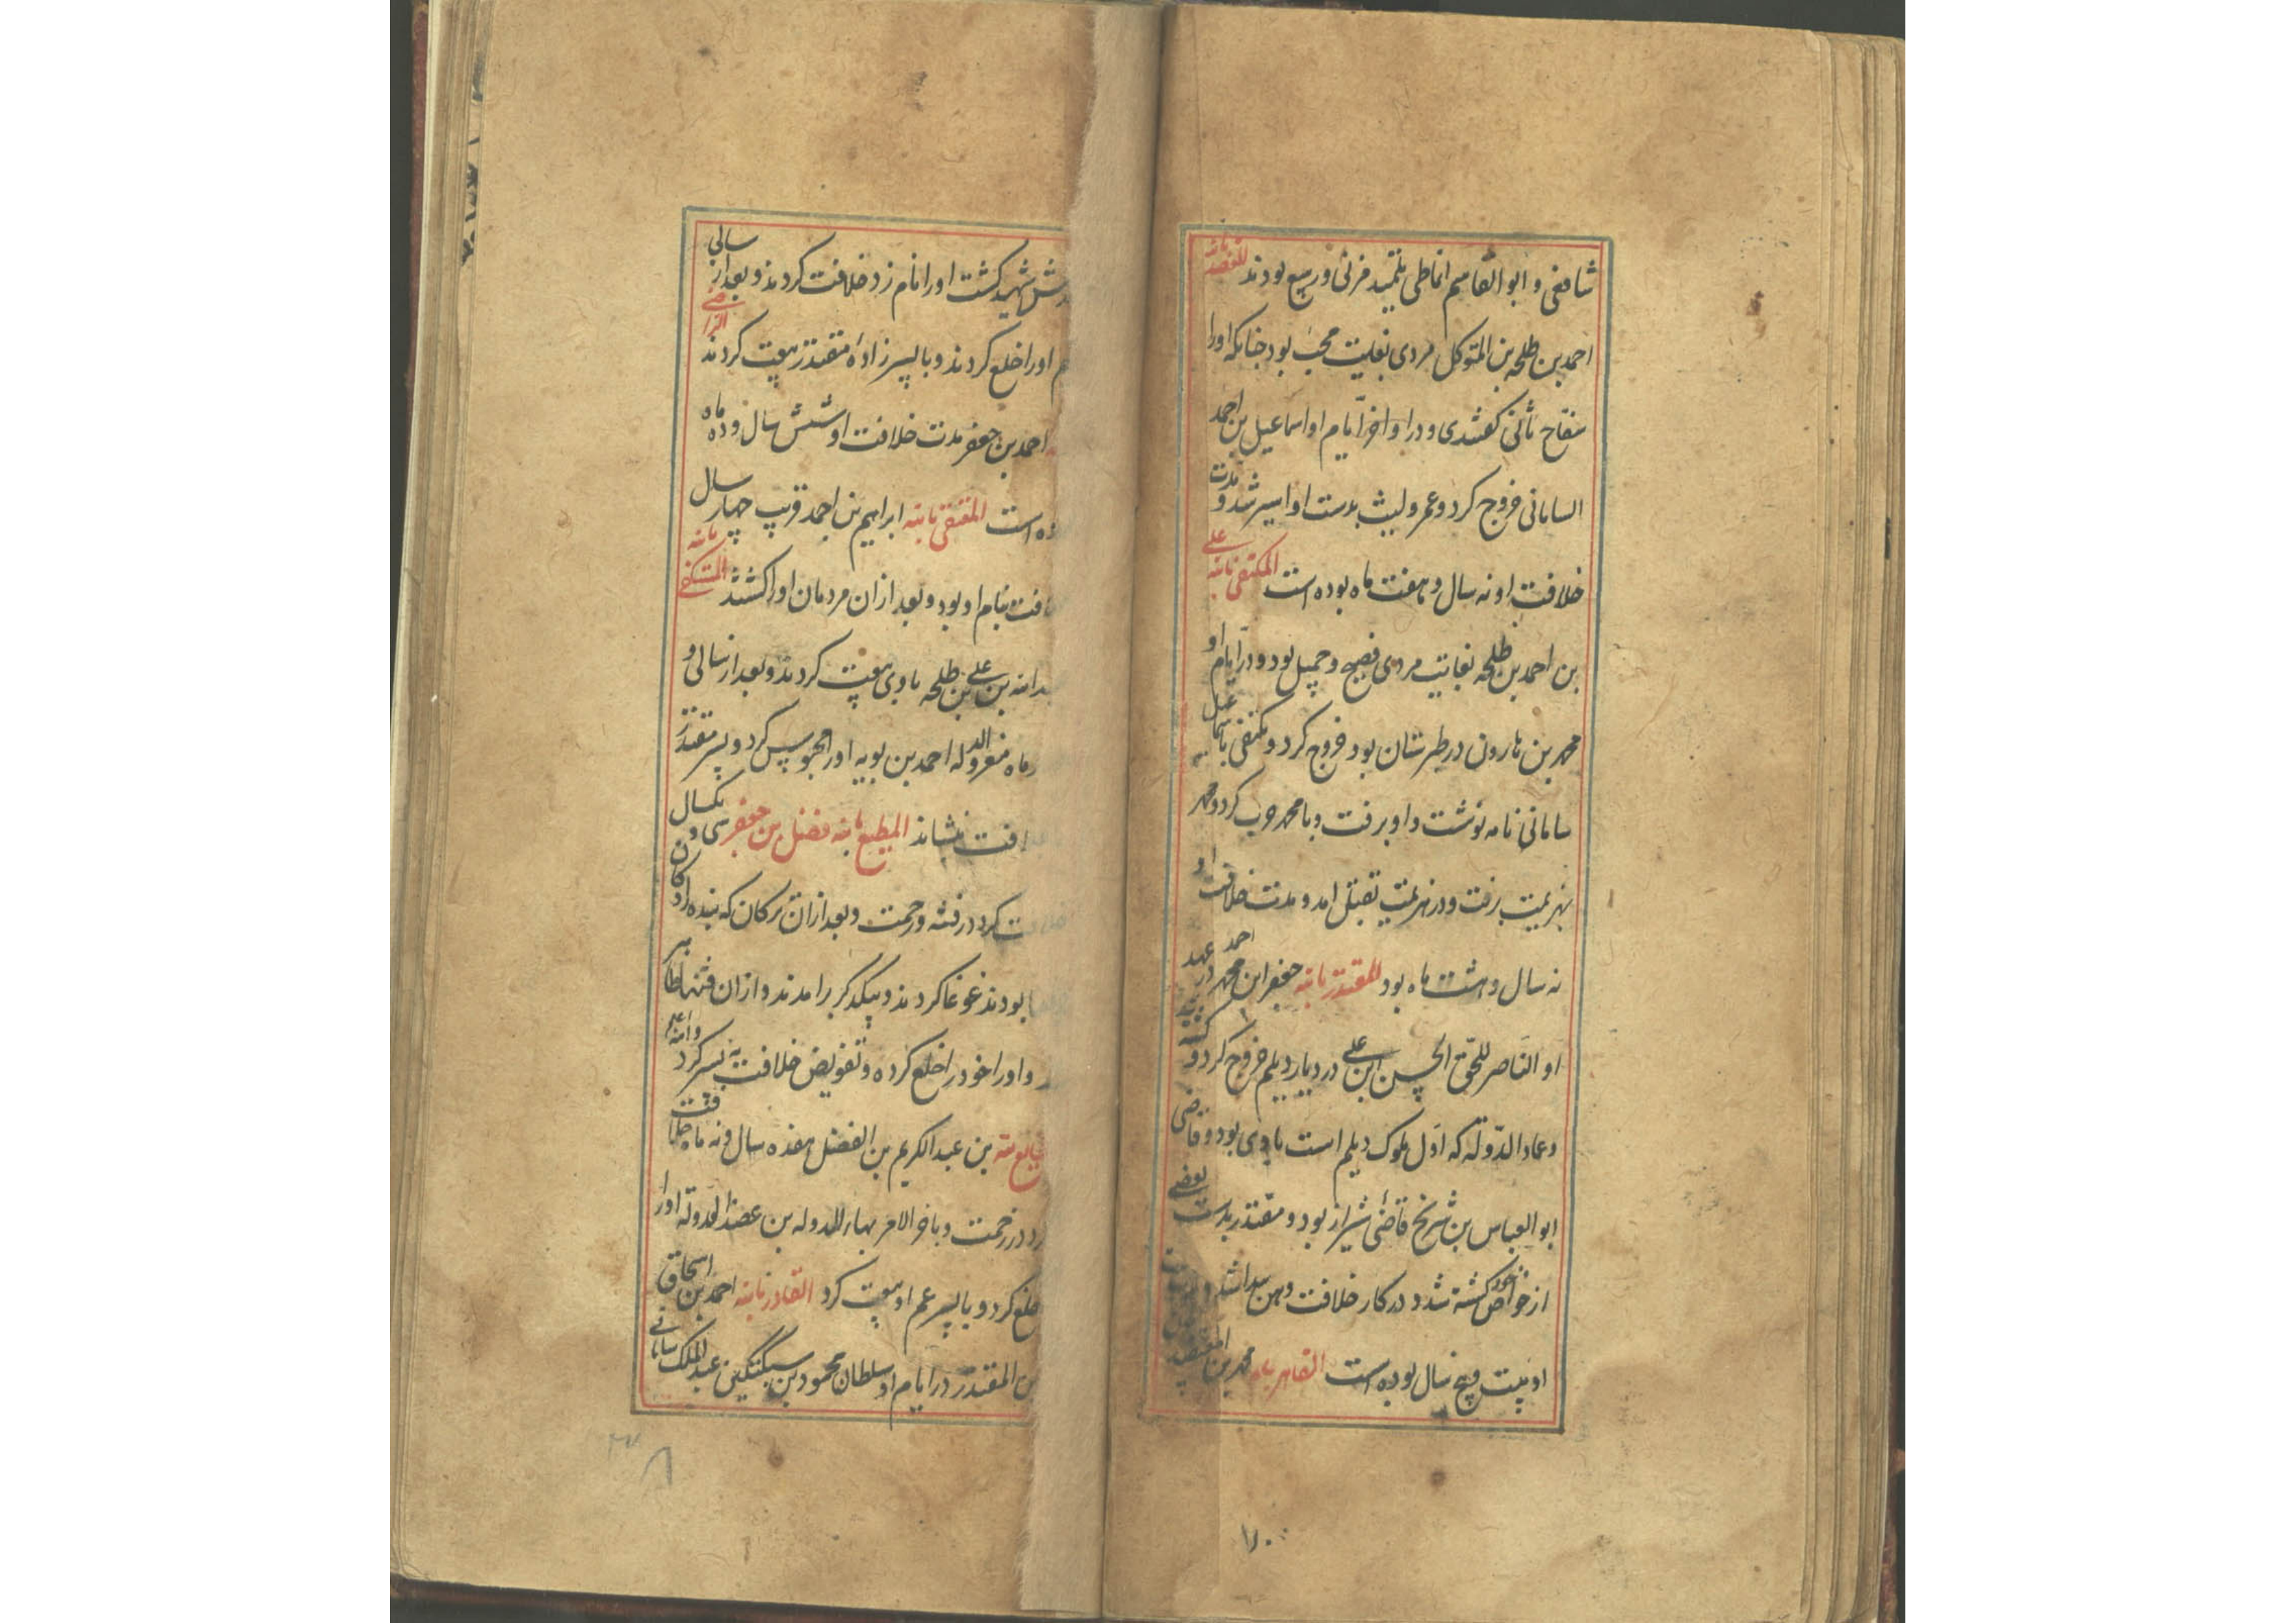 شافعی و ابو القاسم انماطی تلمیذ مزنی و ربیع بودند المعتضد بالله
احمد بن طلحه بن المتوکل مردی بغایت محب بود چنانکه اورا
سفاح ثانی گفتندی و در اواخر ایام او اسماعیل بن احمد
السامانی خروج کرد و عمرو لیث بدست او اسیر شد و مدت
خلافت او نه سال و هفت ماه بوده است المکتفی بالله علی
بن احمد بن طلحه بغایت مردی فصیح و جمیل بود و در ایام او
محمد بن هارون در طبرستان بود خروج کرد و مکتفی باسماعیل
سامانی نامه نوشت و او برفت و با محمد حرب کرد و محمد
بهزیمت برفت و در هزیمت بقتل امد و مدت خلافت او
نه سال و هشت ماه بود المقتدر بالله جعفر ابن محمد احمد در عهد
او الناصر للحق الحسن ابن علی در دیار دیلم خروج کرد و
و عماد الدوله که اول ملوک دیلم است با وی بود و قاضی
ابو العباس بن شریح قاضی شیراز بود و مقتدر بدست بعضی
از خواص خود کشته شد و در کار خلافت وهن پیدا شد و
او بیست و پنج سال بوده است القاهر بالله محمد بن المعتضد
شهید گشت اورا نام زد خلافت کردند و بعد از سالی
اورا خلع کردند و با پسر زاده مقتدر بیعت کردند الراضی
احمد بن جعفر مدت خلافت او شش سال و ده ماه
است المتقی بالله ابراهیم بن احمد قریب چهار سال
بنام او بود و بعد ازان مردمان اورا کشتند المستکفی بالله
بن علی بن طلحه با وی بیعت کردند و بعد از سالی و
ماه معز الدوله احمد بن بویه اورا محبوس کرد و پسر مقتدر
بنشاند المطیع بالله فضل بن جعفر سی و یکسال
کرد در فتنه و زحمت و بعد ازان ترکان که بنده ازادکان
بودند غوغا کردند و بیکدیگر برامدند و ازان فتنها طایر
و اورا خود را خلع کرده و تفویض خلافت به پسر کرد والله اعلم
بن عبد الکریم بن الفضل هفده سال و نه ماه خلافت
در زحمت و باخر الامر بهاء الدوله بن عضد الدوله اورا
خلع کرد و با پسر عم او بیعت کرد القادر بالله احمد بن اسحاق
بن المقتدر در ایام او سلطان محمود بن سبکتکین عبد الملک سامانی
۱۸۰